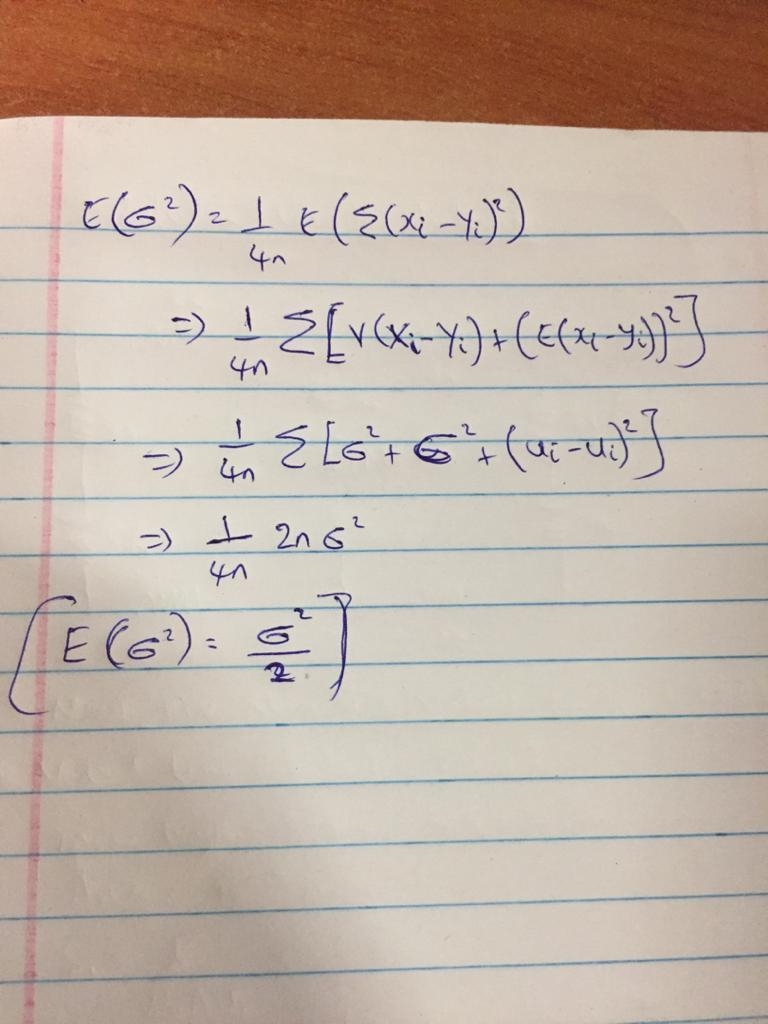 E(σ²) = 1/4n E(Σ(xi-yi)²)
=> 1/4n Σ[V(xi-yi)+(E(xi-yi))²]
=> 1/4n Σ[σ²+σ²+(ui-ui)²]
=> 1/4n 2nσ²
[E(σ²) = σ²/2]